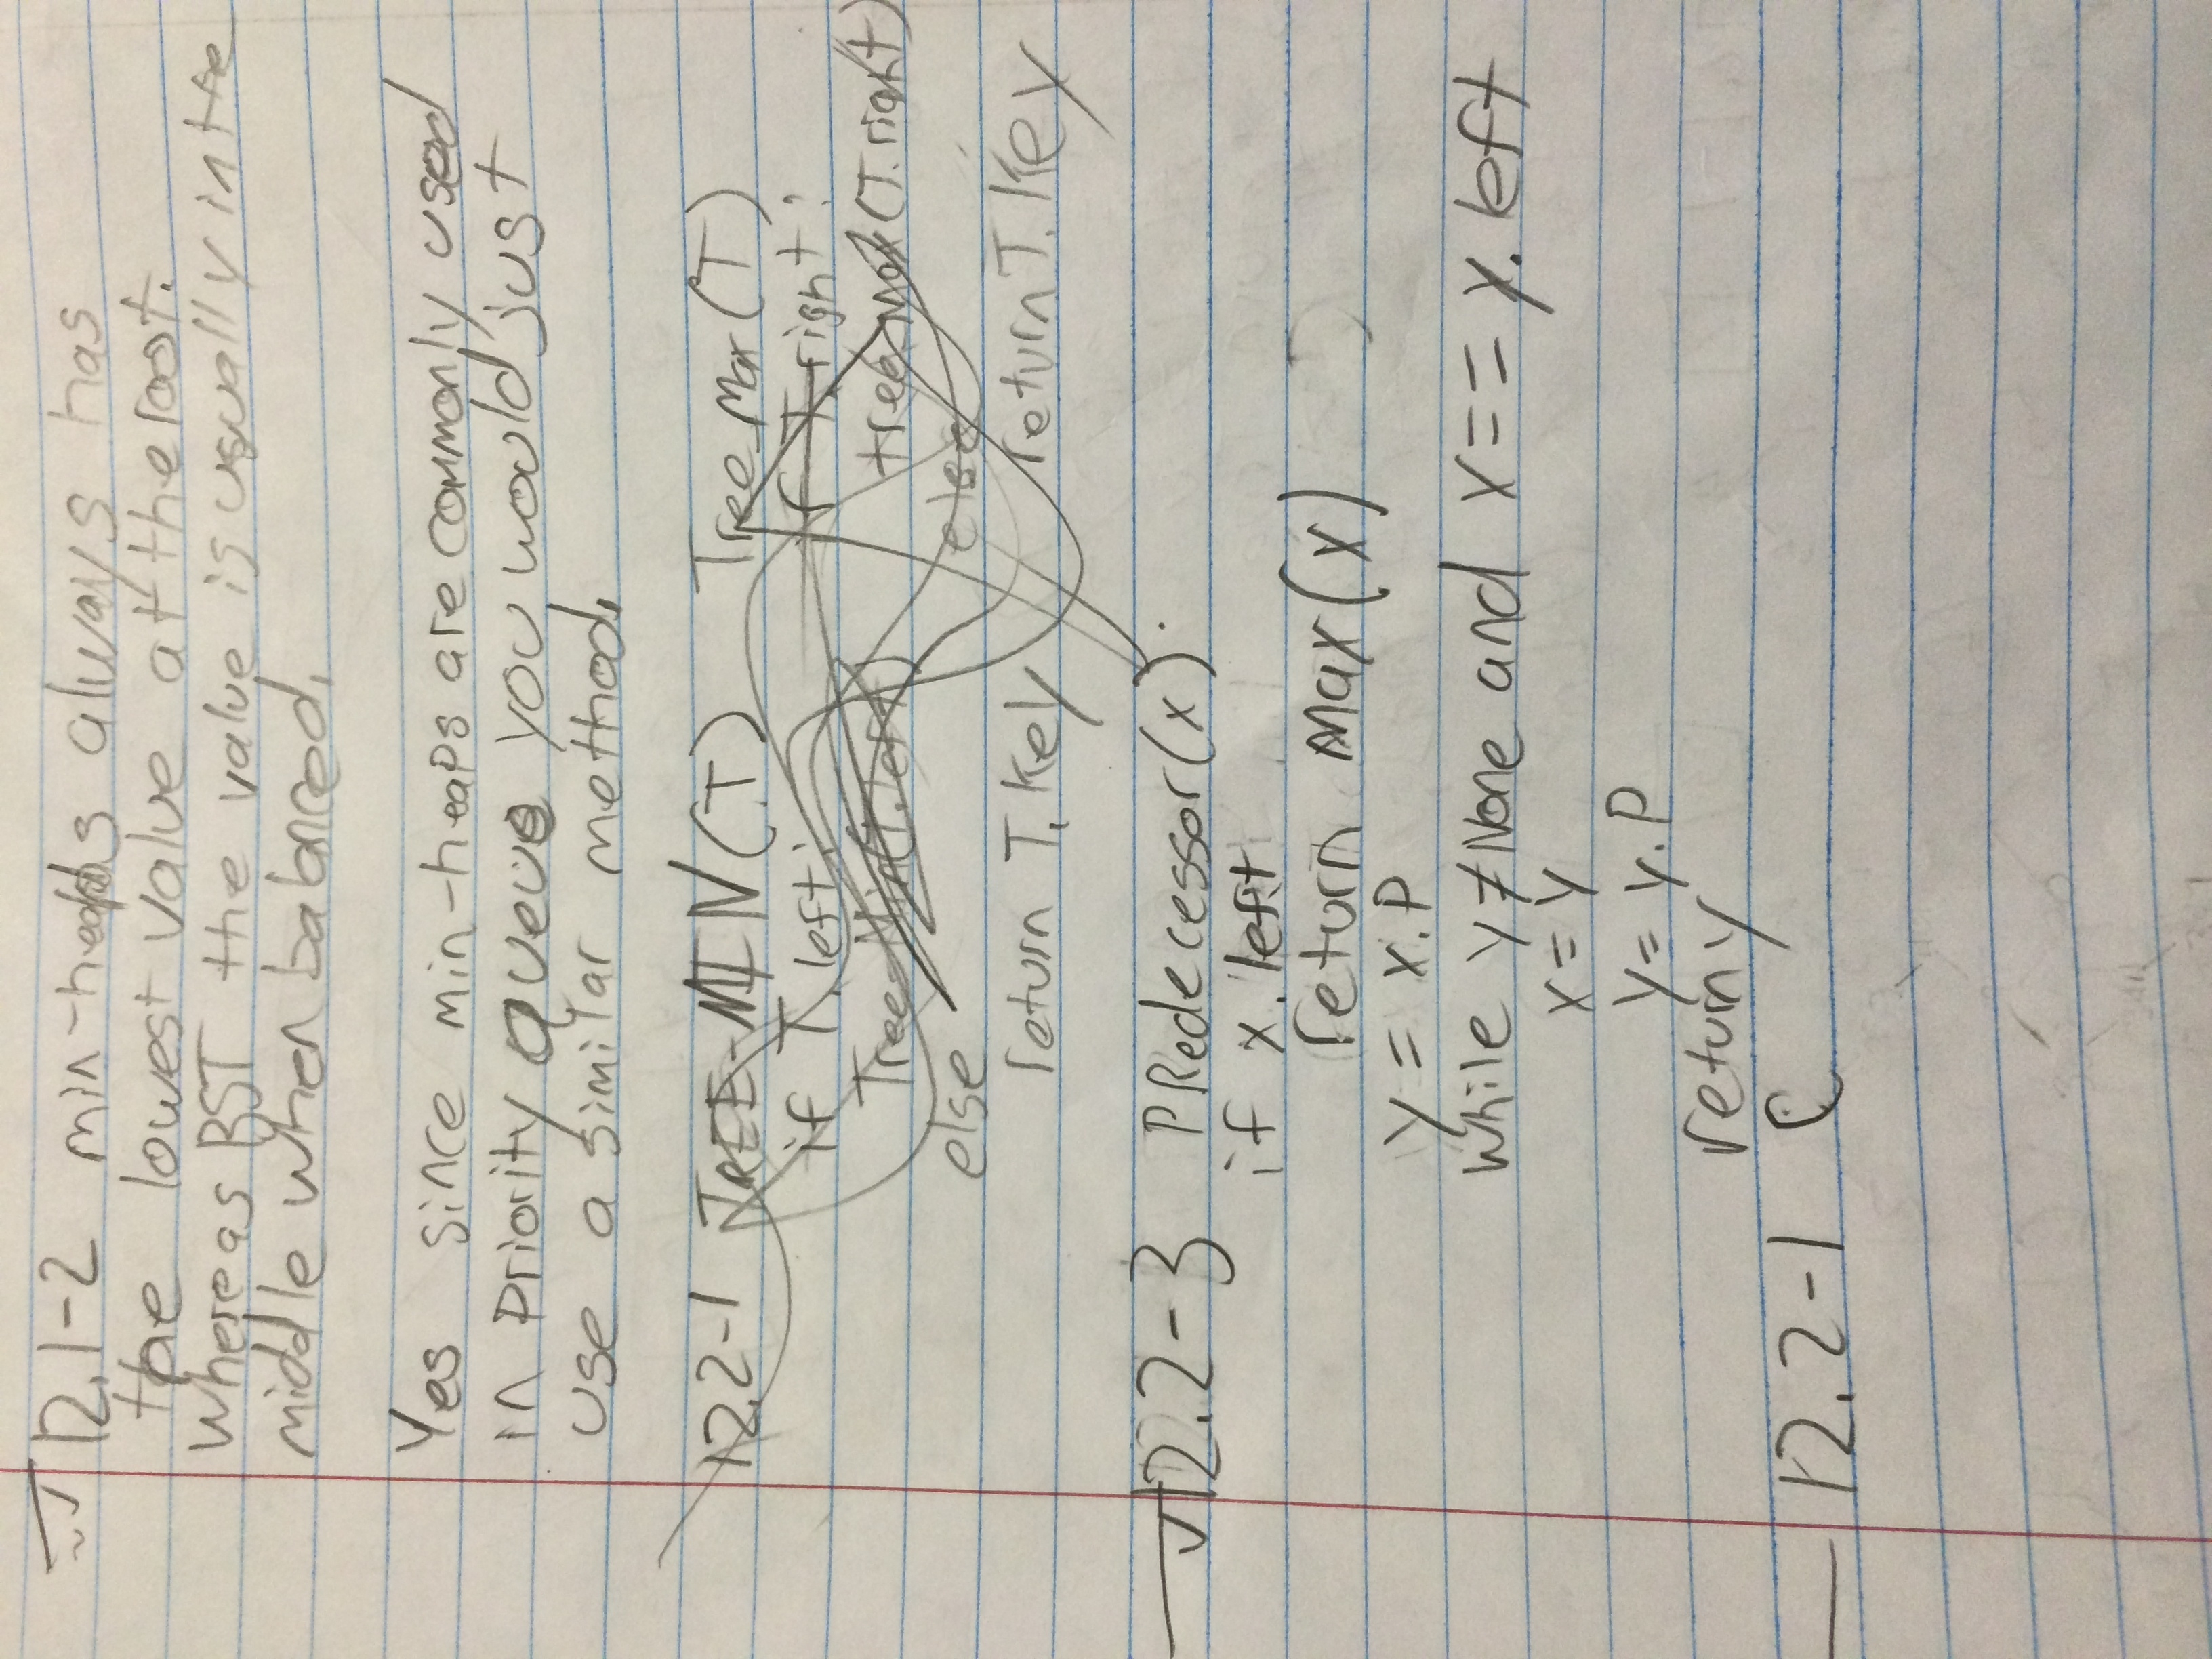 12.1-2 min-heaps always has
the lowest value at the root.
Whereas BST the value is usually in the
middle when balanced.
Yes since min-heaps are commonly used
in priority queue you would just
use a similar method.
12.2-1 TREE-MIN(T)
if T.left:
else
return T.key
Tree_Max(T)
if T.right:
treemax(T.right)
else
return T.key
12.2-3 PRedecessor(x):
if x.left
return max(x)
y = x.p
while y ≠ None and x == x.left
x = y
y = y.p
return y
12.2-1 C